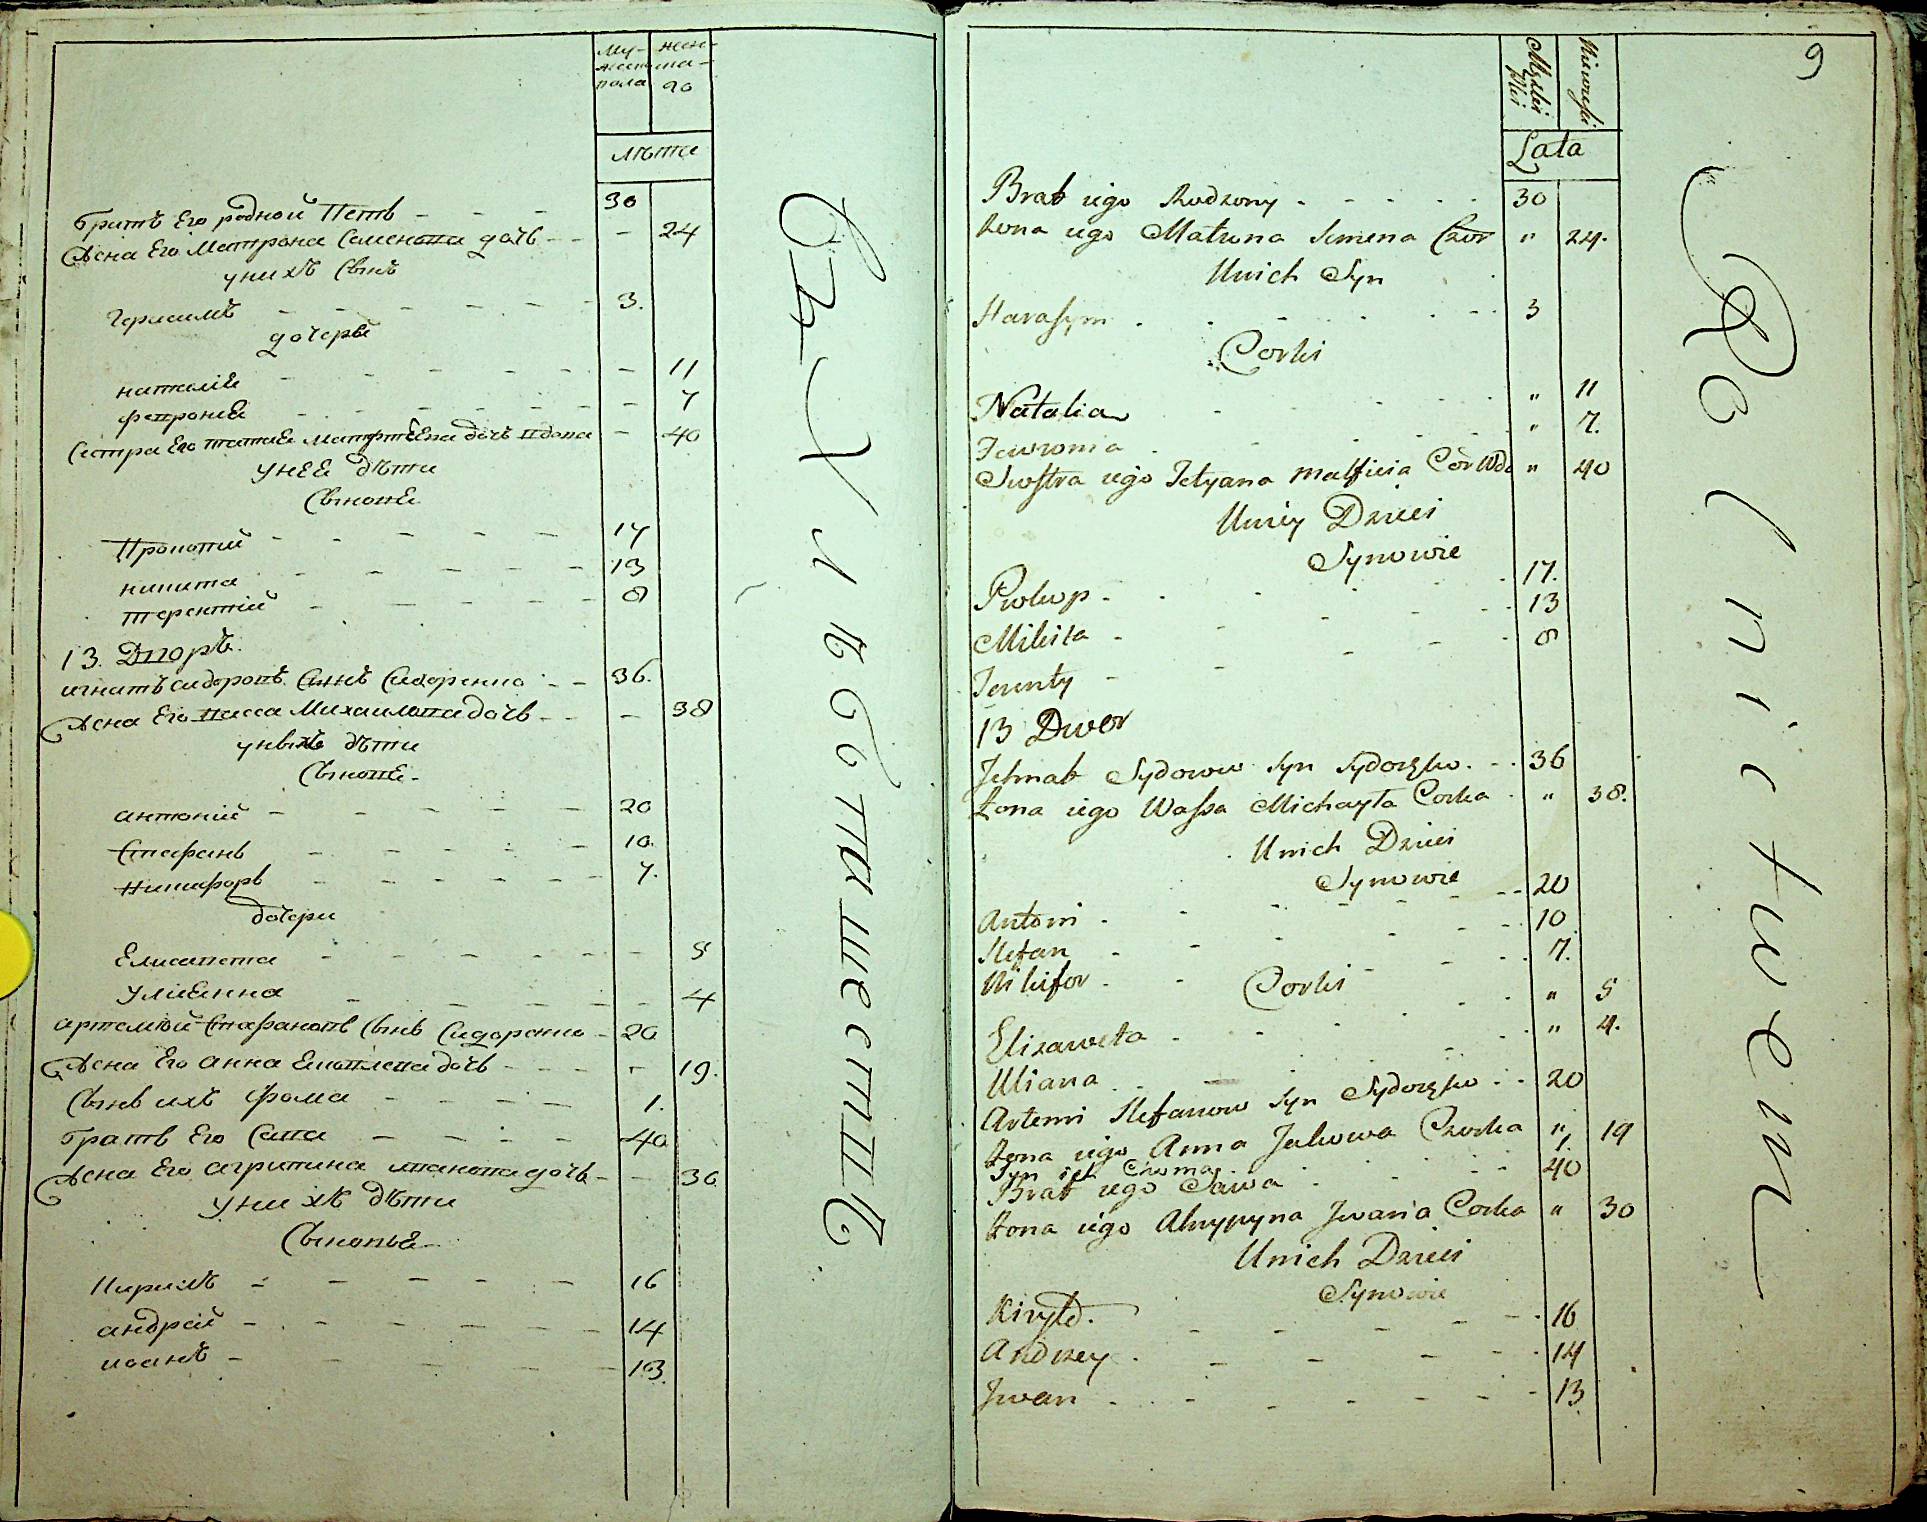 Му-
жеска
пола
жен-
ска-
го
лѣта
братъ Его родной Петръ - - - 30
Жена Его Матрона Семенова дочь - - - 24
у нихъ сынъ
Герасимъ - - - - - - 3.
дочерѣ
наталіѣ - - - - - - - 11
февроніѣ - - - - - - - 7
Сестра Его татиѣ Матфѣева дочь вдова - 40
у неѣ дѣти
Сыновѣ
Прокопій - - - - - 17
никита - - - - - 13
терентій - - - - - 8
13. Дворъ.
игнатъ сидоровъ Синъ Сидоренко - - 36.
Жена Его васса Михаилова дочь - - - 38
у ныхъ дѣти
Сыновѣ -
антоній - - - - - 20
Стефанъ - - - - - 10.
Никифоръ - - - - - 7.
дочери
Елисавета - - - - - - 5
Улиѣнна - - - - - - 4
артемий Стефановъ Сынъ Сидоренко - 20
Жена Его анна Ековлева дочь - - - - - 19.
Сынъ ихъ фома - - - - 1.
братъ Его Сава - - - - 40
Жена Его агрипина иванова дочь - - 30
у нихъ дѣти
Сыновьѣ
Кирилъ - - - - - 16
андрей - - - - - - 14
иоанъ - - - - - 13.
въ Хлѣбопашествѣ
9
Męzkei
Płci
Niewiesci
Lata
Brat iego Rodzony - - - - - 30
żona iego Matrona Semena Czor " 24.
Unich Syn
Harasym - - - - - - 3
Corki
Natalia - - - - - " 11
Fewronia - - - - - " 7.
Siostra iego Tetyana Matfieia Cor Wdo " 40
Uniey Dzieci
Synowie
Prokop - - - - - 17.
Mikita - - - - - 13
Terenty - - - - - 8
13 Dwor
Jehnat Sydorow Syn Sydoręko. - - 36
żona iego Wassa Michayła Corka - " 38.
Unich Dzieci
Synowie
Antoni - - - - - - 20
Stefan - - - - - - 10
Nikifor - - - - - - 7.
Corki
Elizaweta - - - - - " 5
Uliana - - - - - " 4.
Artemi Stefanow Syn Sydoręko - - 20
żona iego Anna Jakowa Czorka " 19
Syn ich Choma - 1.
Brat iego Sawa - - - - - 40
żona iego Ahrypyna Jwana Corka " 30
Unich Dzieci
Synowie
Kiryło. - - - - - 16
Andrzey - - - - - 14
Jwan - - - - - - 13
Rolnictwem